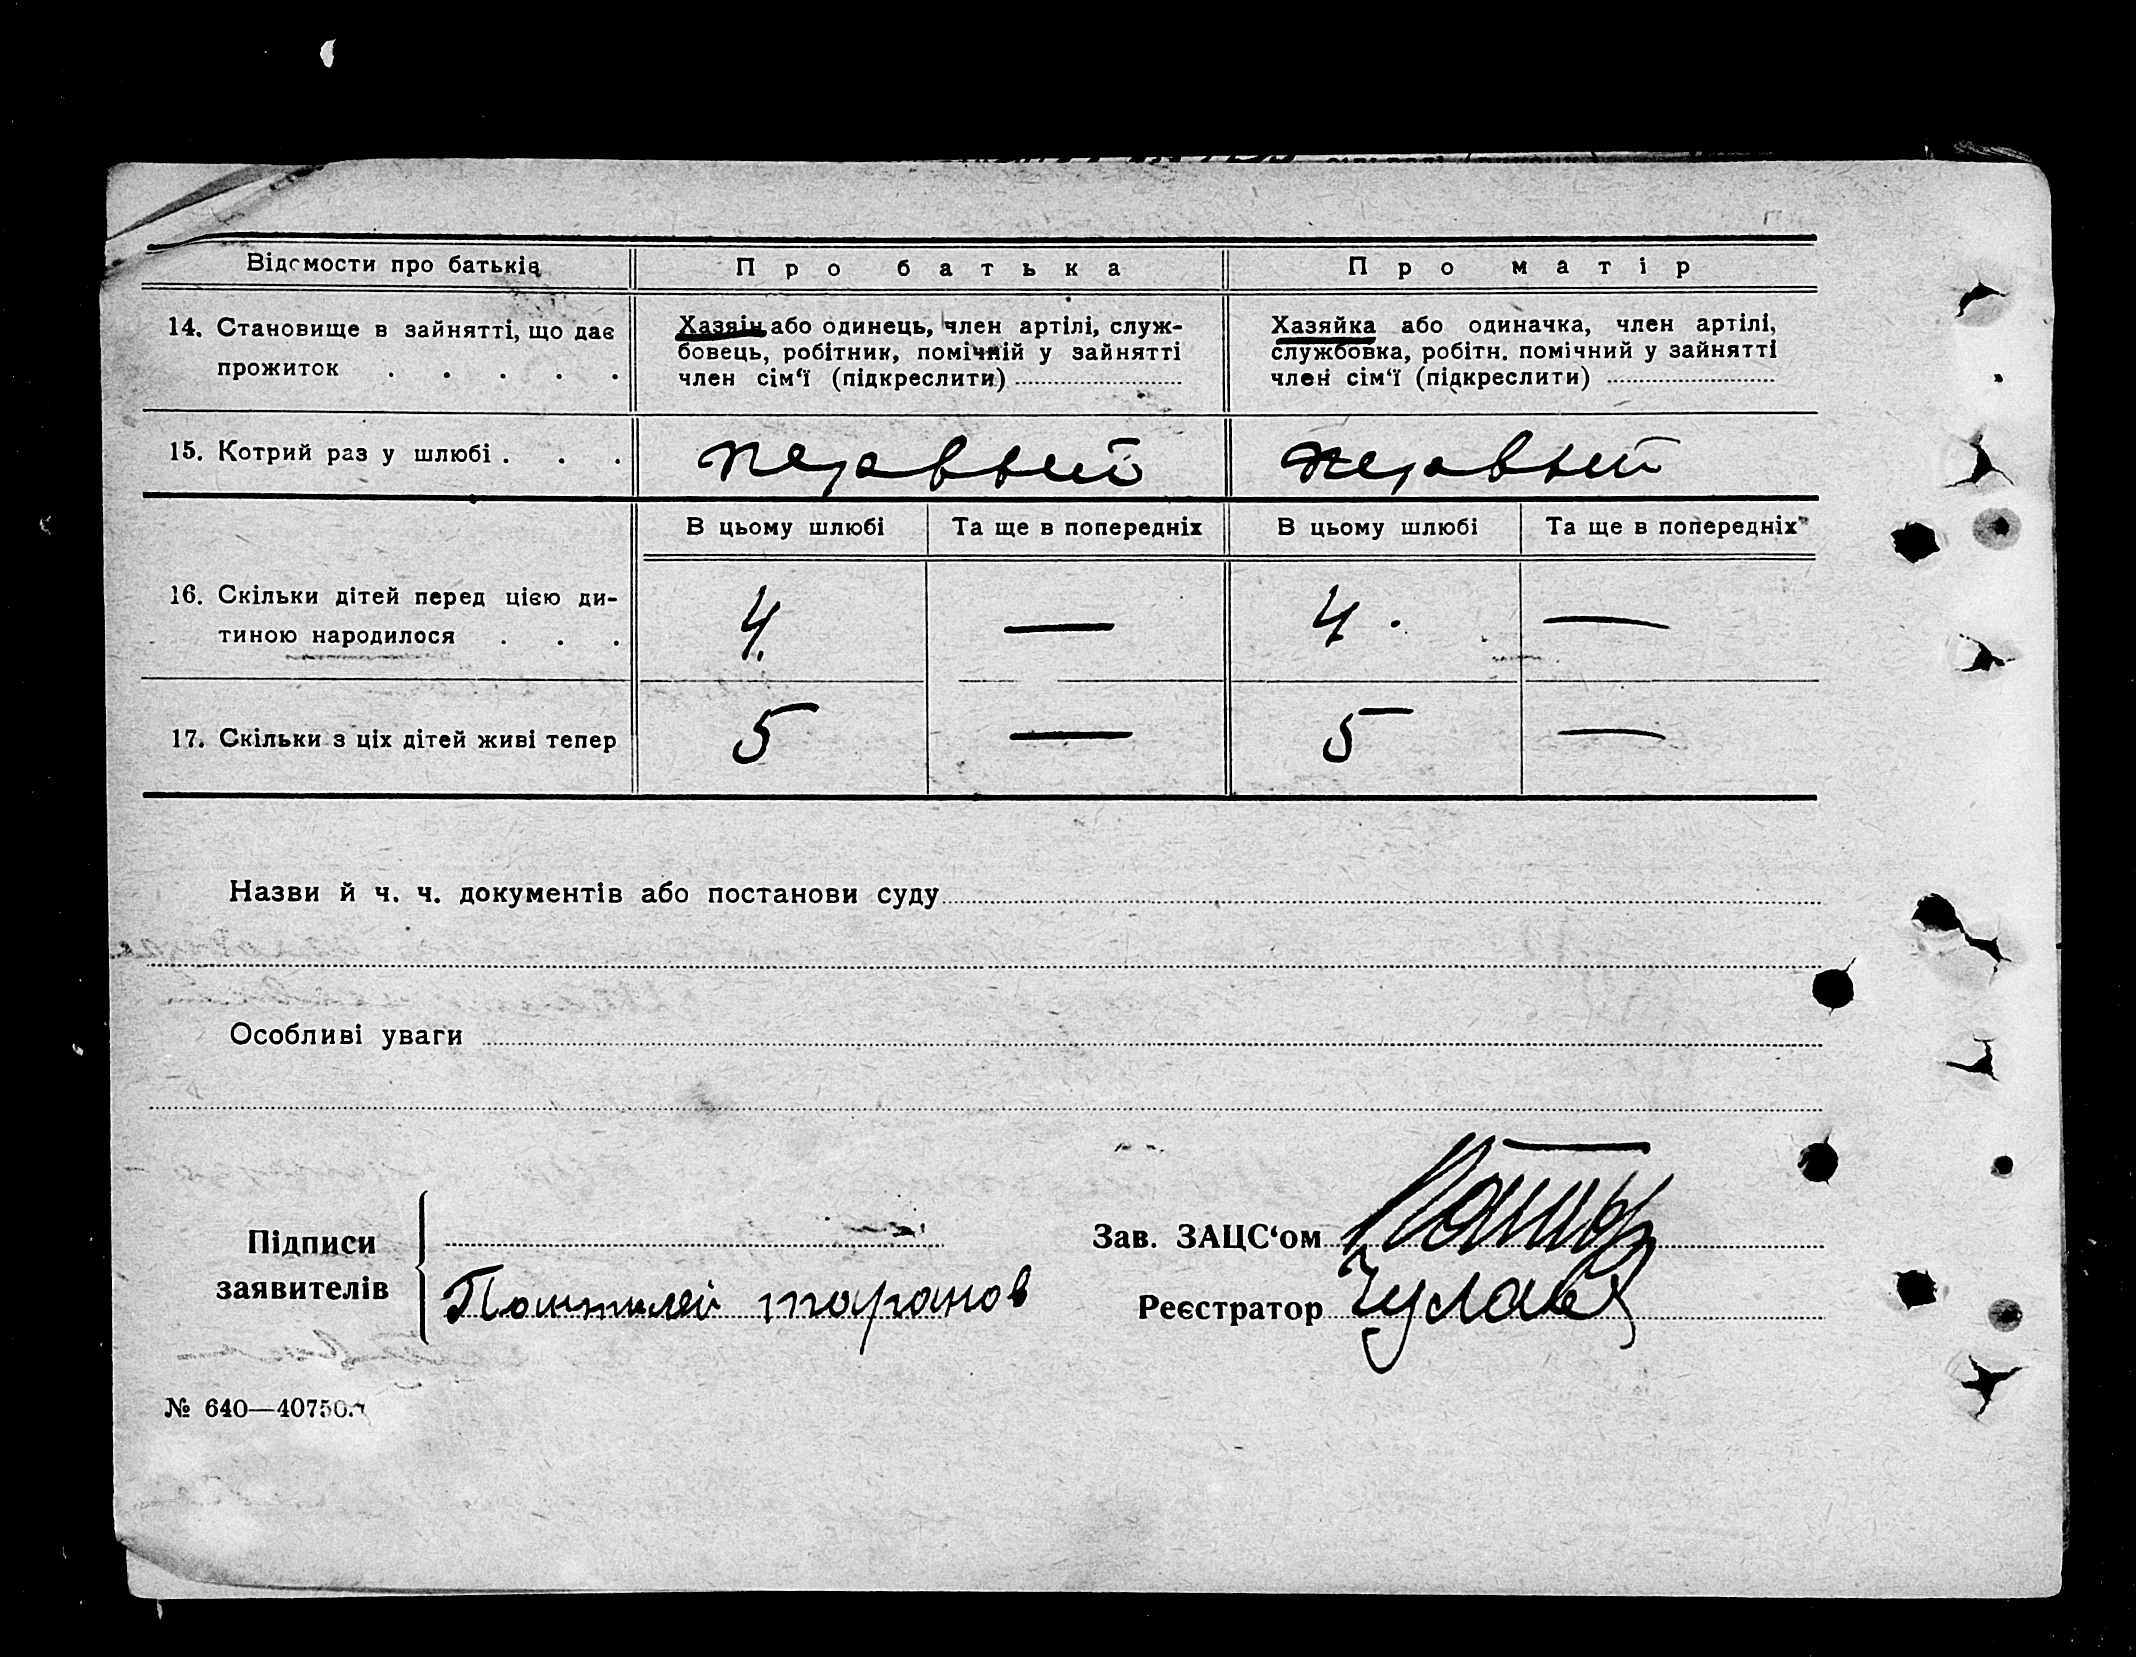 Відомости про батьків
Про батька
Про матір
14. Становище в зайнятті, що дає
прожиток . . . . .
Хазяїн або одинець, член артілі, служ-
бовець, робітник, помічній у зайнятті
член сім‘ї (підкреслити)
Хазяйка або одиначка, член артілі,
службовка, робітн. помічний у зайнятті
член сім‘ї (підкреслити)
15. Котрий раз у шлюбі . . .
первый
первый
В цьому шлюбі
Та ще в попередніх
В цьому шлюбі
Та ще в попередніх
16. Скільки дітей перед цією ди-
тиною народилося . . .
4.
—
4.
—
17. Скільки з ціх дітей живі тепер
5
—
5
—
Назви й ч. ч. документів або постанови суду
Особливі уваги
Підписи
заявителів
таранов
Зав. ЗАЦС‘ом
Реєстратор
№ 640—40750.